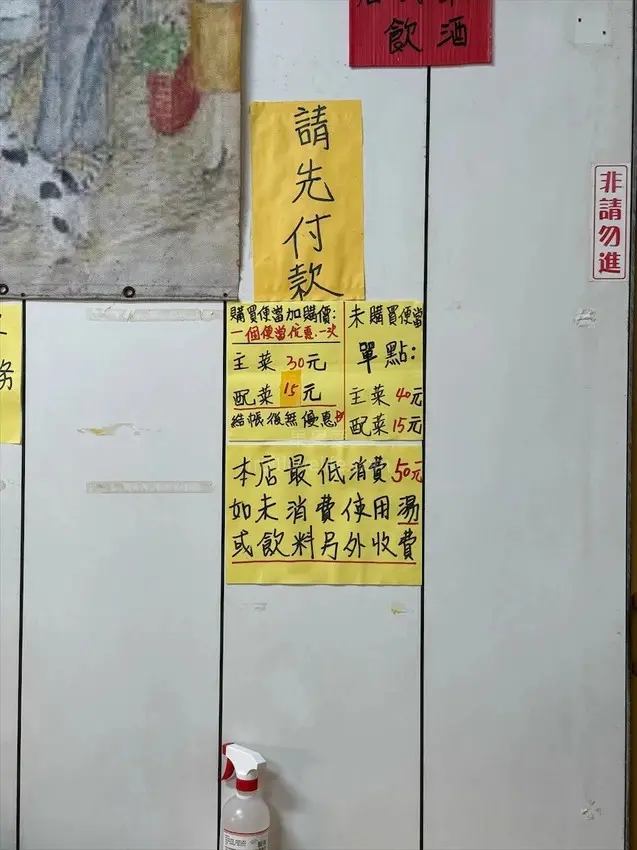 飲酒
請先付款
非請勿進
購買便當加購價:
一個便當優惠一次
主菜30元
配菜15元
結帳後無優惠
未購買便當
單點:
主菜40元
配菜15元
本店最低消費50元
如未消費使用湯
或飲料另外收費
務